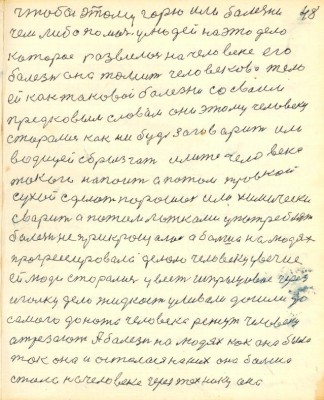 чтобы этому горю или балезни 48
чем либо помоч у людей на это дело
которое развилоя на человеке его
балезн она томит человеково тело
ей как таковой балезни со своим
предковым словам они этому человеку
старалис как нибудь заговарит или
водицей сбризгат или то человека
токого напоит а потом травкой
сухой сделат порошок или химически
сварит а потим ложками употреблят
балезн не прикрощалас а балша на людях
прогресировала делала человеку увечие
ей люди сторалис увест шприцовою через
иголку дело жидкост уливали дошли до
самого до ножа человека режут человеку
атрезают А балезн на людях как она была
так она и осталася на них она балша
стала на человеке через технику она